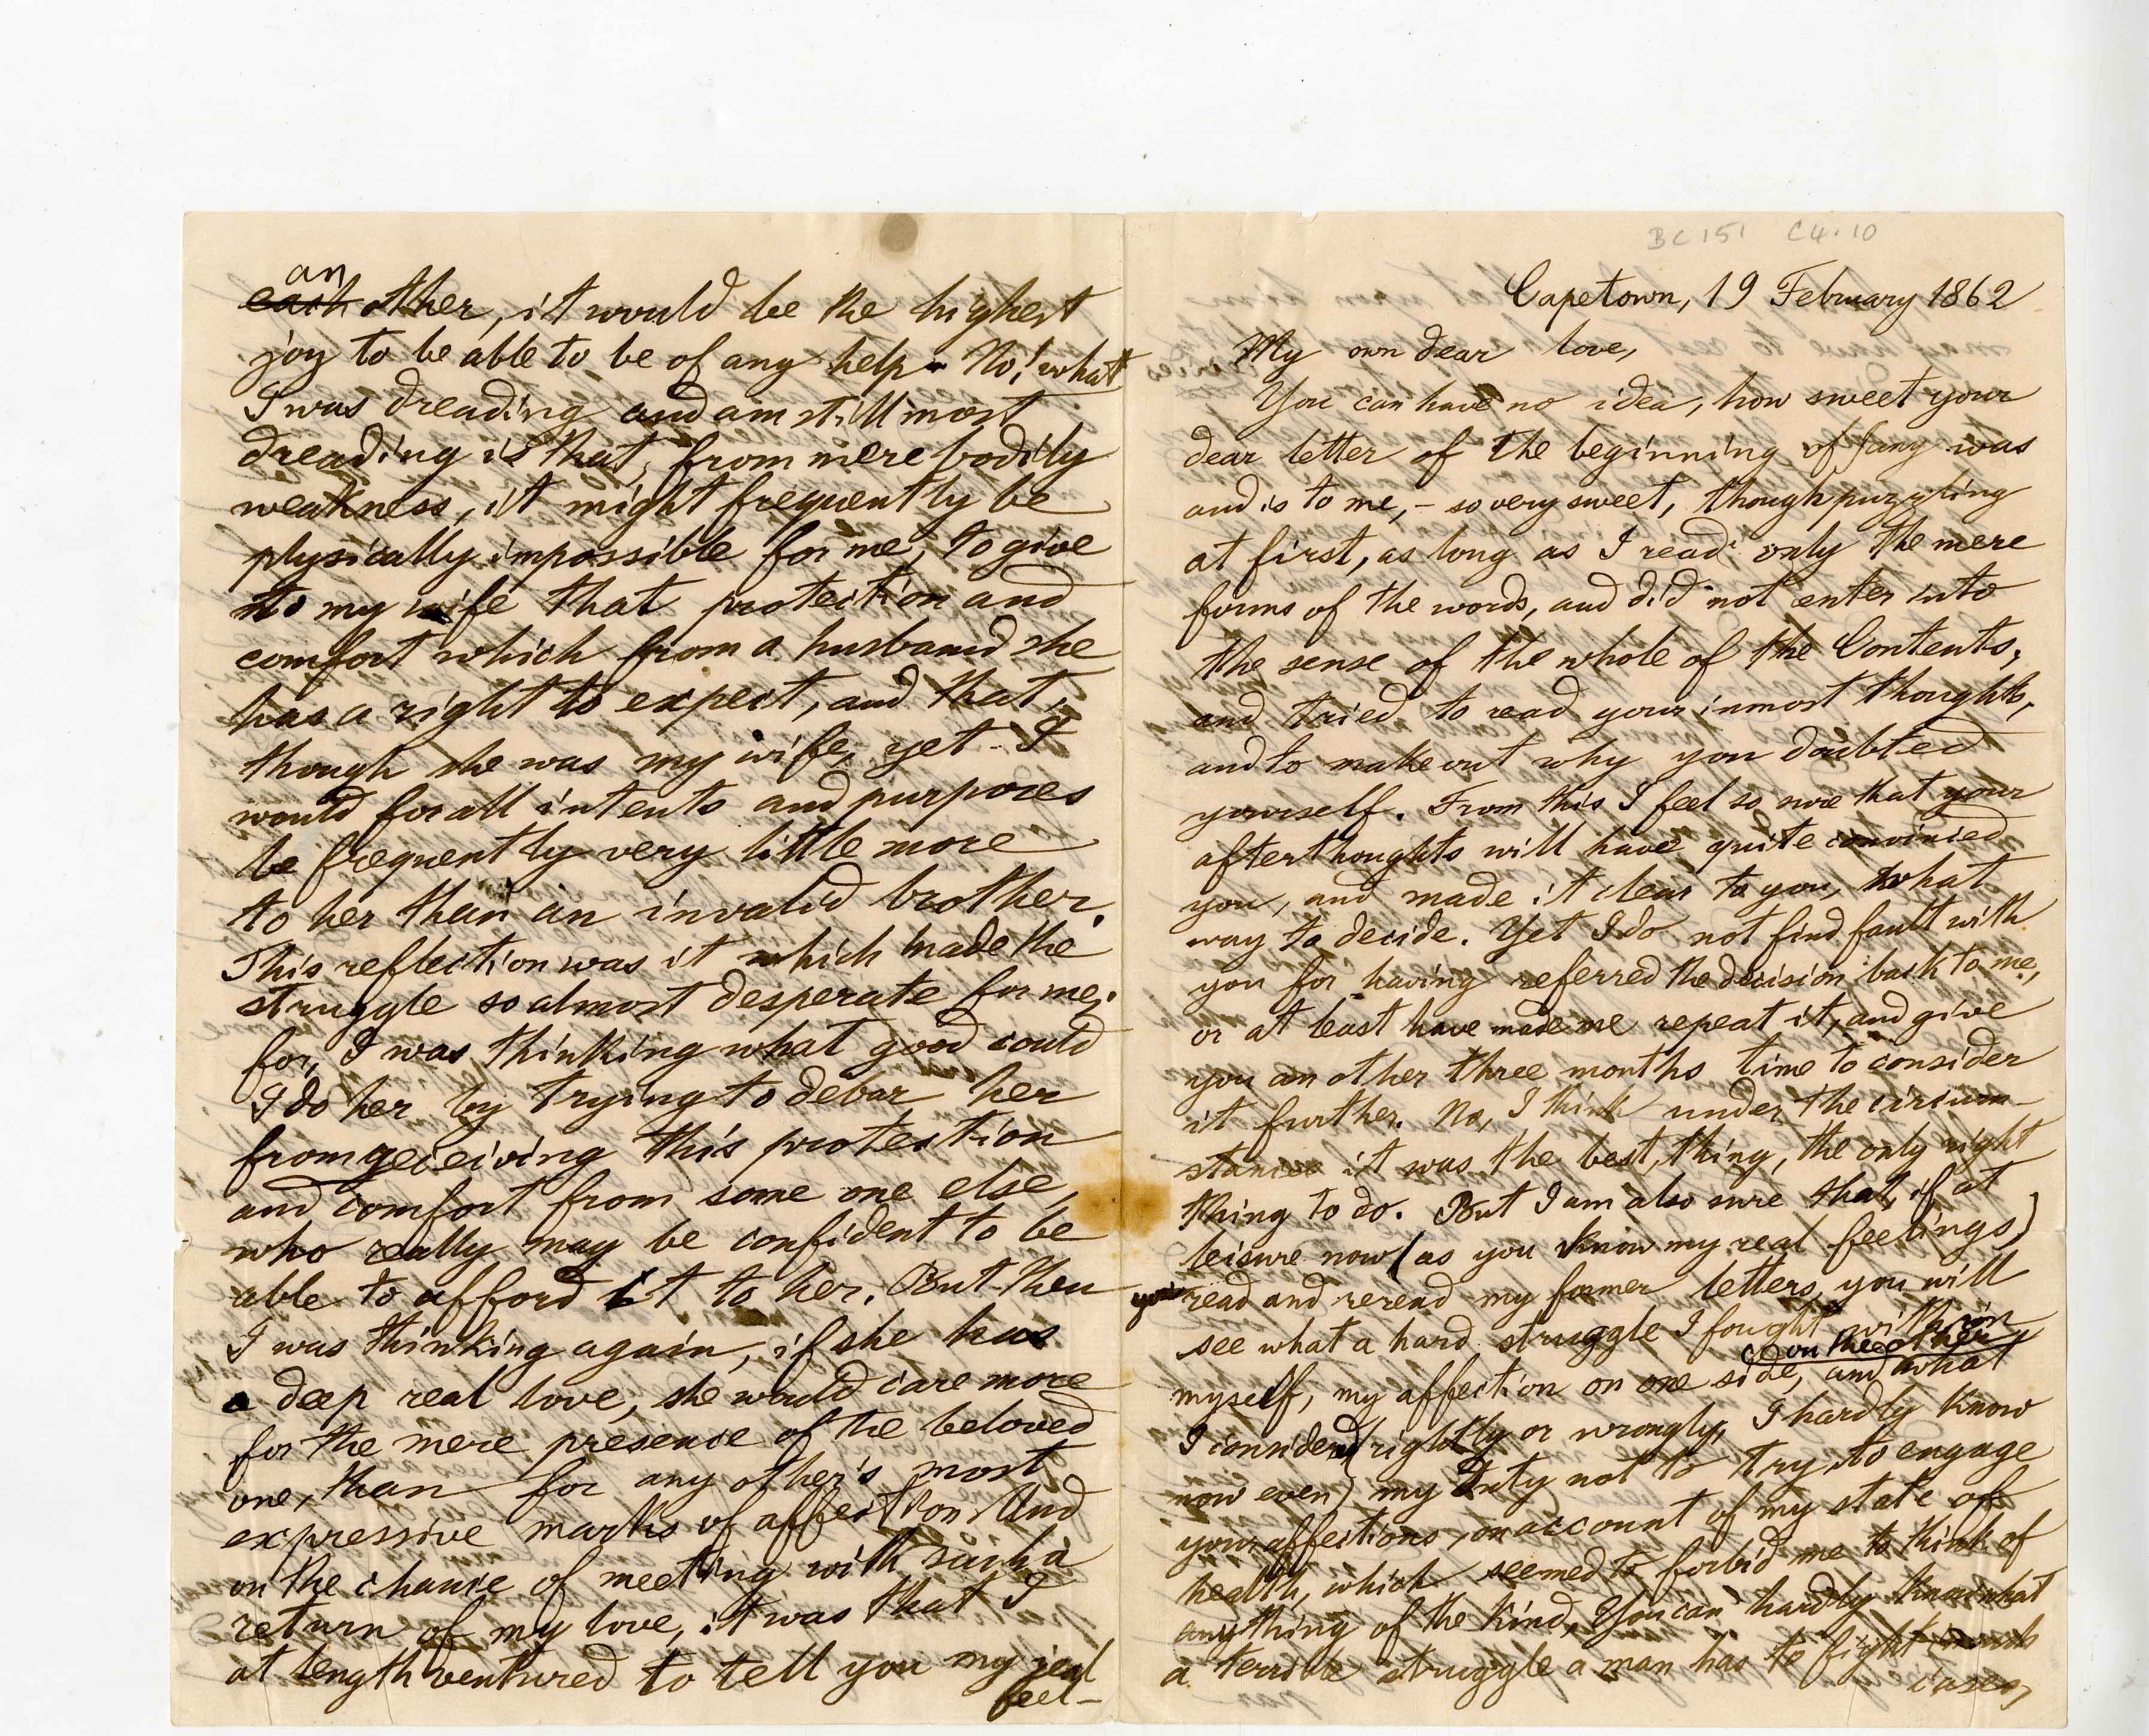 BC151 C4.10
Capetown, 19 February 1862
My own dear love,
You can have no idea, how sweet your
dear letter of the beginning of Jany was
and is to me, - so very sweet, though puzzling
at first, as long as I read only the mere
forms of the words, and did not enter into
the sense of the whole of the Contents,
and tried to read your inmost thoughts,
and to make out why you doubted
yourself. From this I feel so sure that your
afterthoughts will have quite convinced
you, and made it clear to you, what
way to decide. Yet I do not find fault with
you for having referred the decision back to me,
or at least have made me repeat it, and give
you an other three months time to consider
it further. No, I think under the circum-
stances it was the best thing, the only right
thing to do. But I am also sure that, if at
leisure now (as you know my real feelings)
you read and reread my former letters, you will
see what a hard struggle I fought within
myself, my affection on one side, and on the other what
I considered (rightly or wrongly, I hardly know
now even) my duty not to try to engage
your affections, on account of my state of
health, which seemed to forbid me to think of
anything of the kind. You can hardly know what
a terrible struggle a man has to fight in such
cases,
each an other, it would be the highest
joy to be able to be of any help - No! what
I was dreading and am still most
dreading is that, from mere bodily
weakness, it might frequently be
physically impossible for me, to give
to my wife that protection and
comfort which from a husband she
has a right to expect, and that,
though she was my wife, yet I
would for all intents and purposes
be frequently very little more
to her than an invalid brother.
This reflection was it which made the
struggle so almost desperate for me;
for, I was thinking what good could
I do her by trying to debar her
from receiving this protection
and comfort from some one else,
who really may be confident to be
able to afford it to her. But then
I was thinking again, if she has
a deep real love, she would care more
for the mere presence of the beloved
one, than for any other's most
expressive marks of affection. And
on the chance of meeting with such a
return of my love, it was that I
at length ventured to tell you my real
feel-